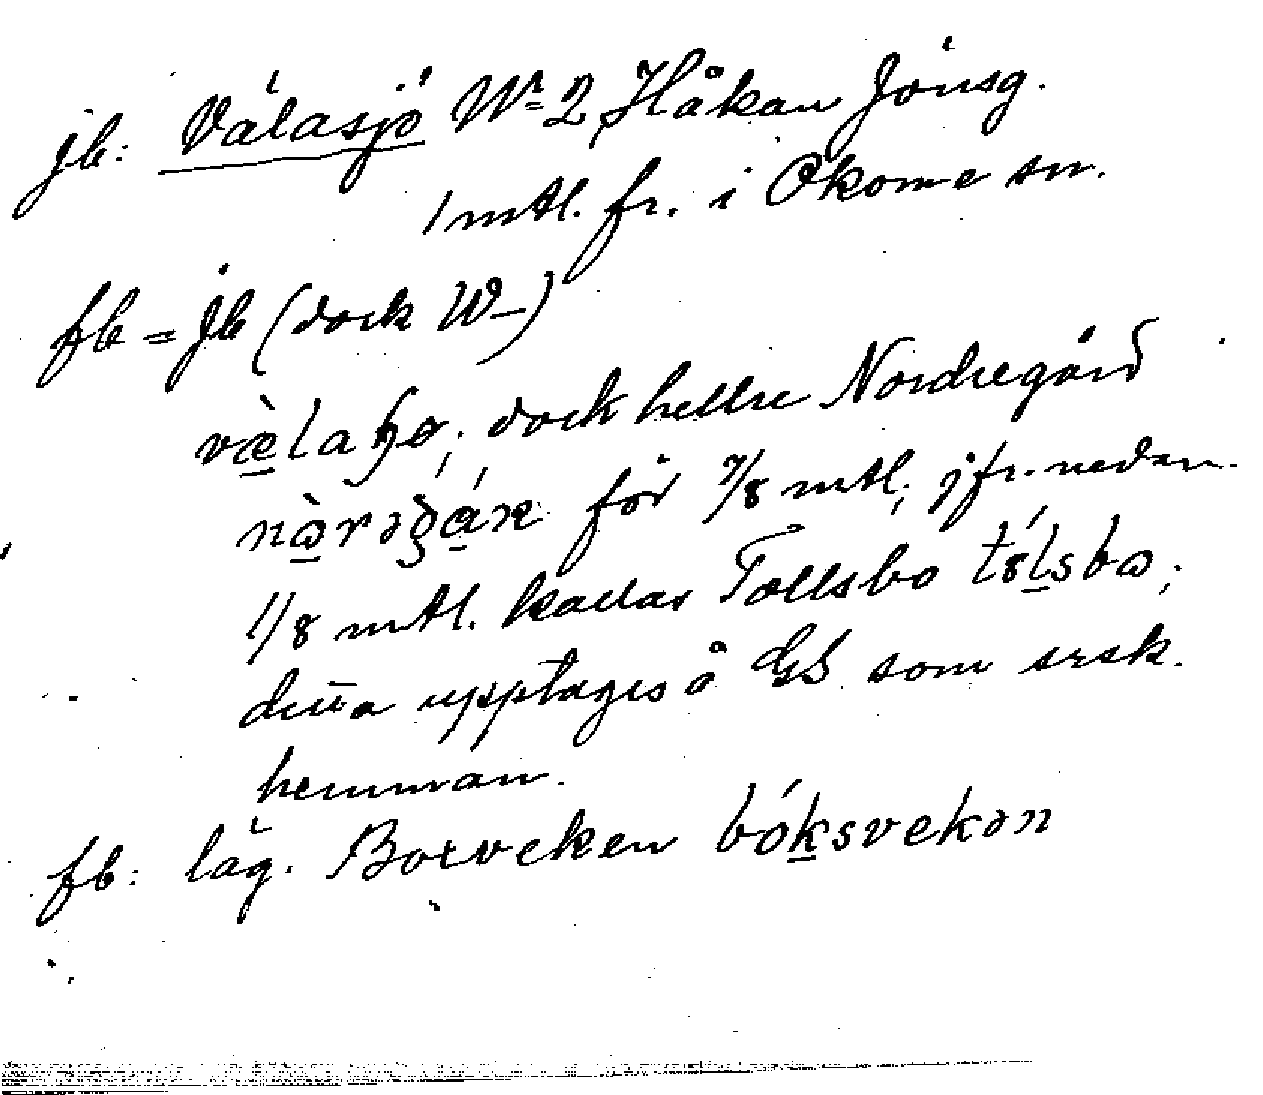 jb: Välasjö Nr 2 Håkan Jönsg.
1 mtl. fr. i Okome sn.
fb = jb (dock W–)
dock hellre Nordregård
för 7/8 mtl; jfr. nedan.
1/8 mtl. kallas Tœllsbo
denna upptages å GS som srsk.
hemman.
fb: läg. Boxveken bóksvekən